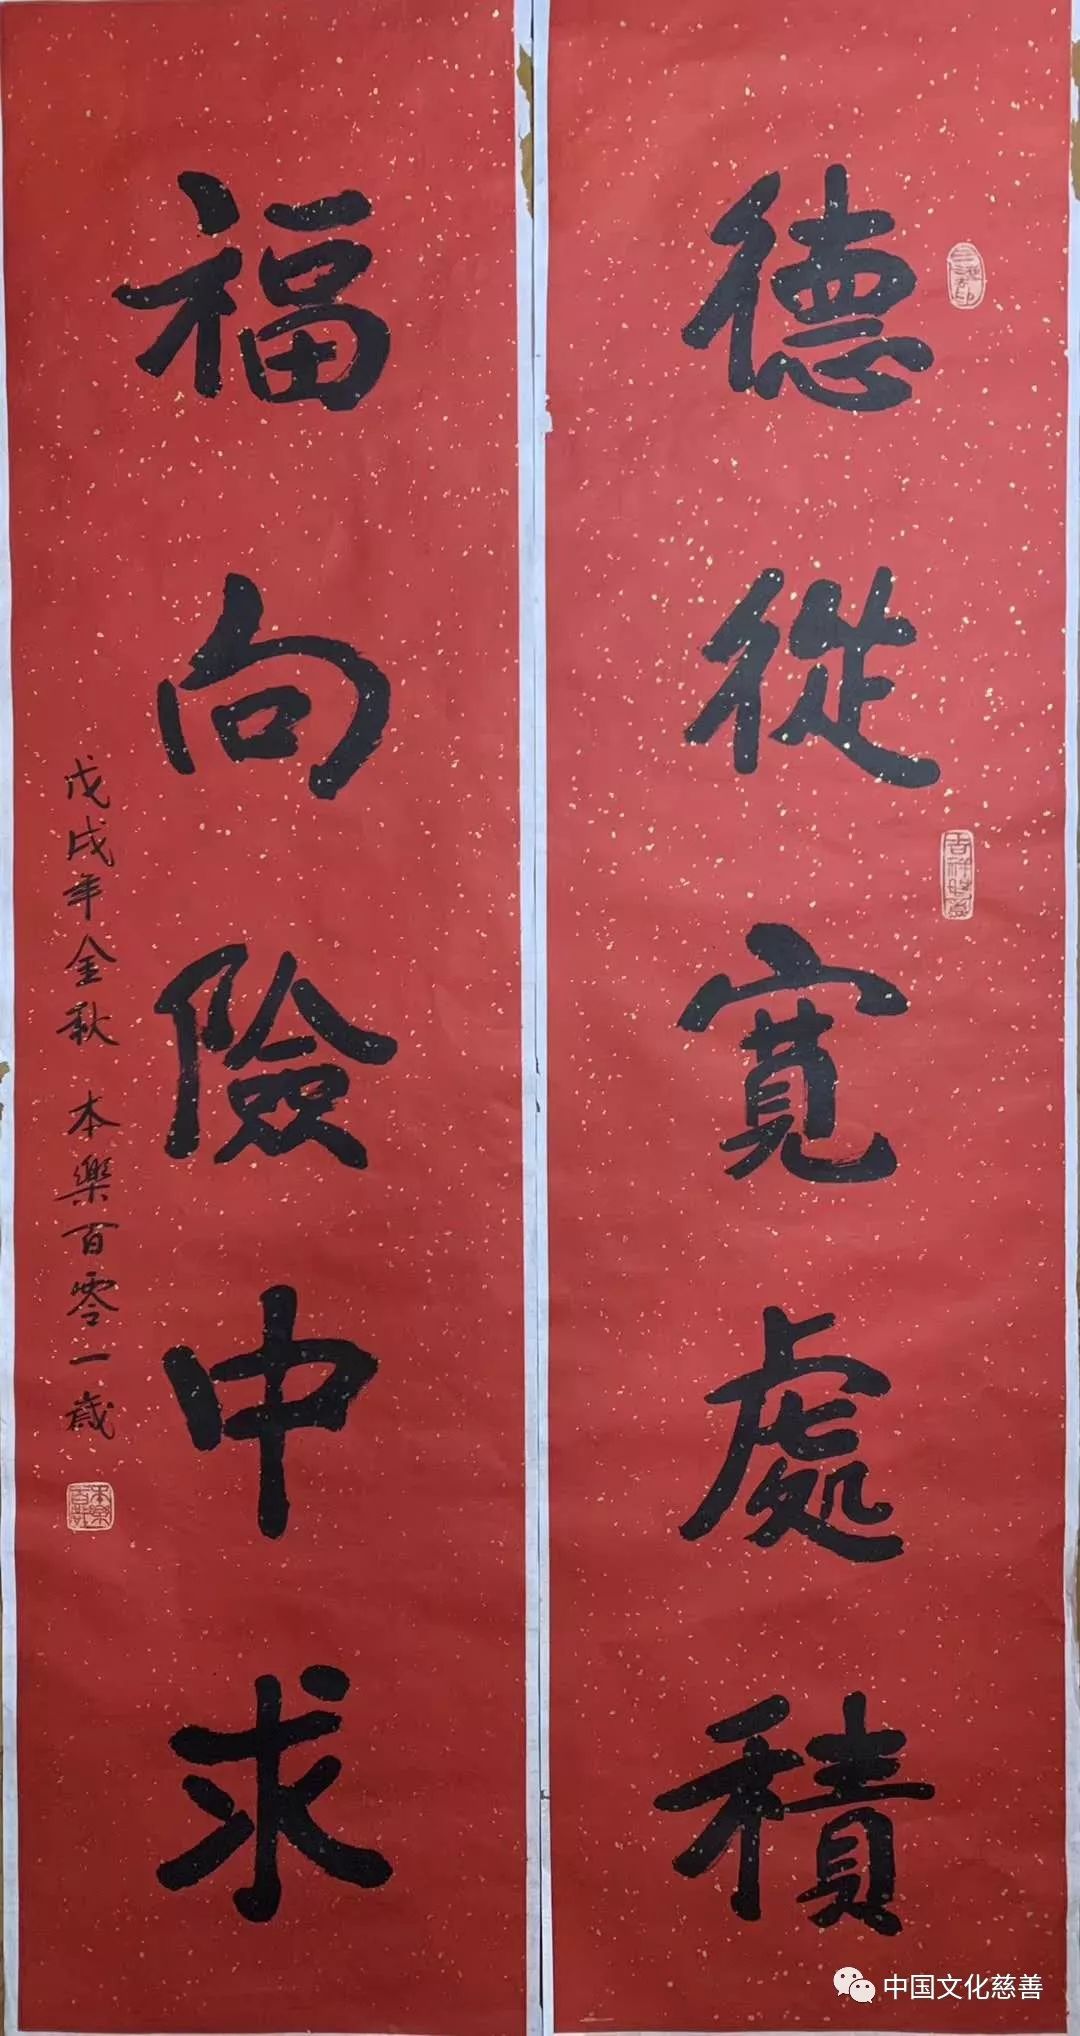 德從寬處積
福向險中求
戊戌年金秋 本樂百零一歲
中国文化慈善